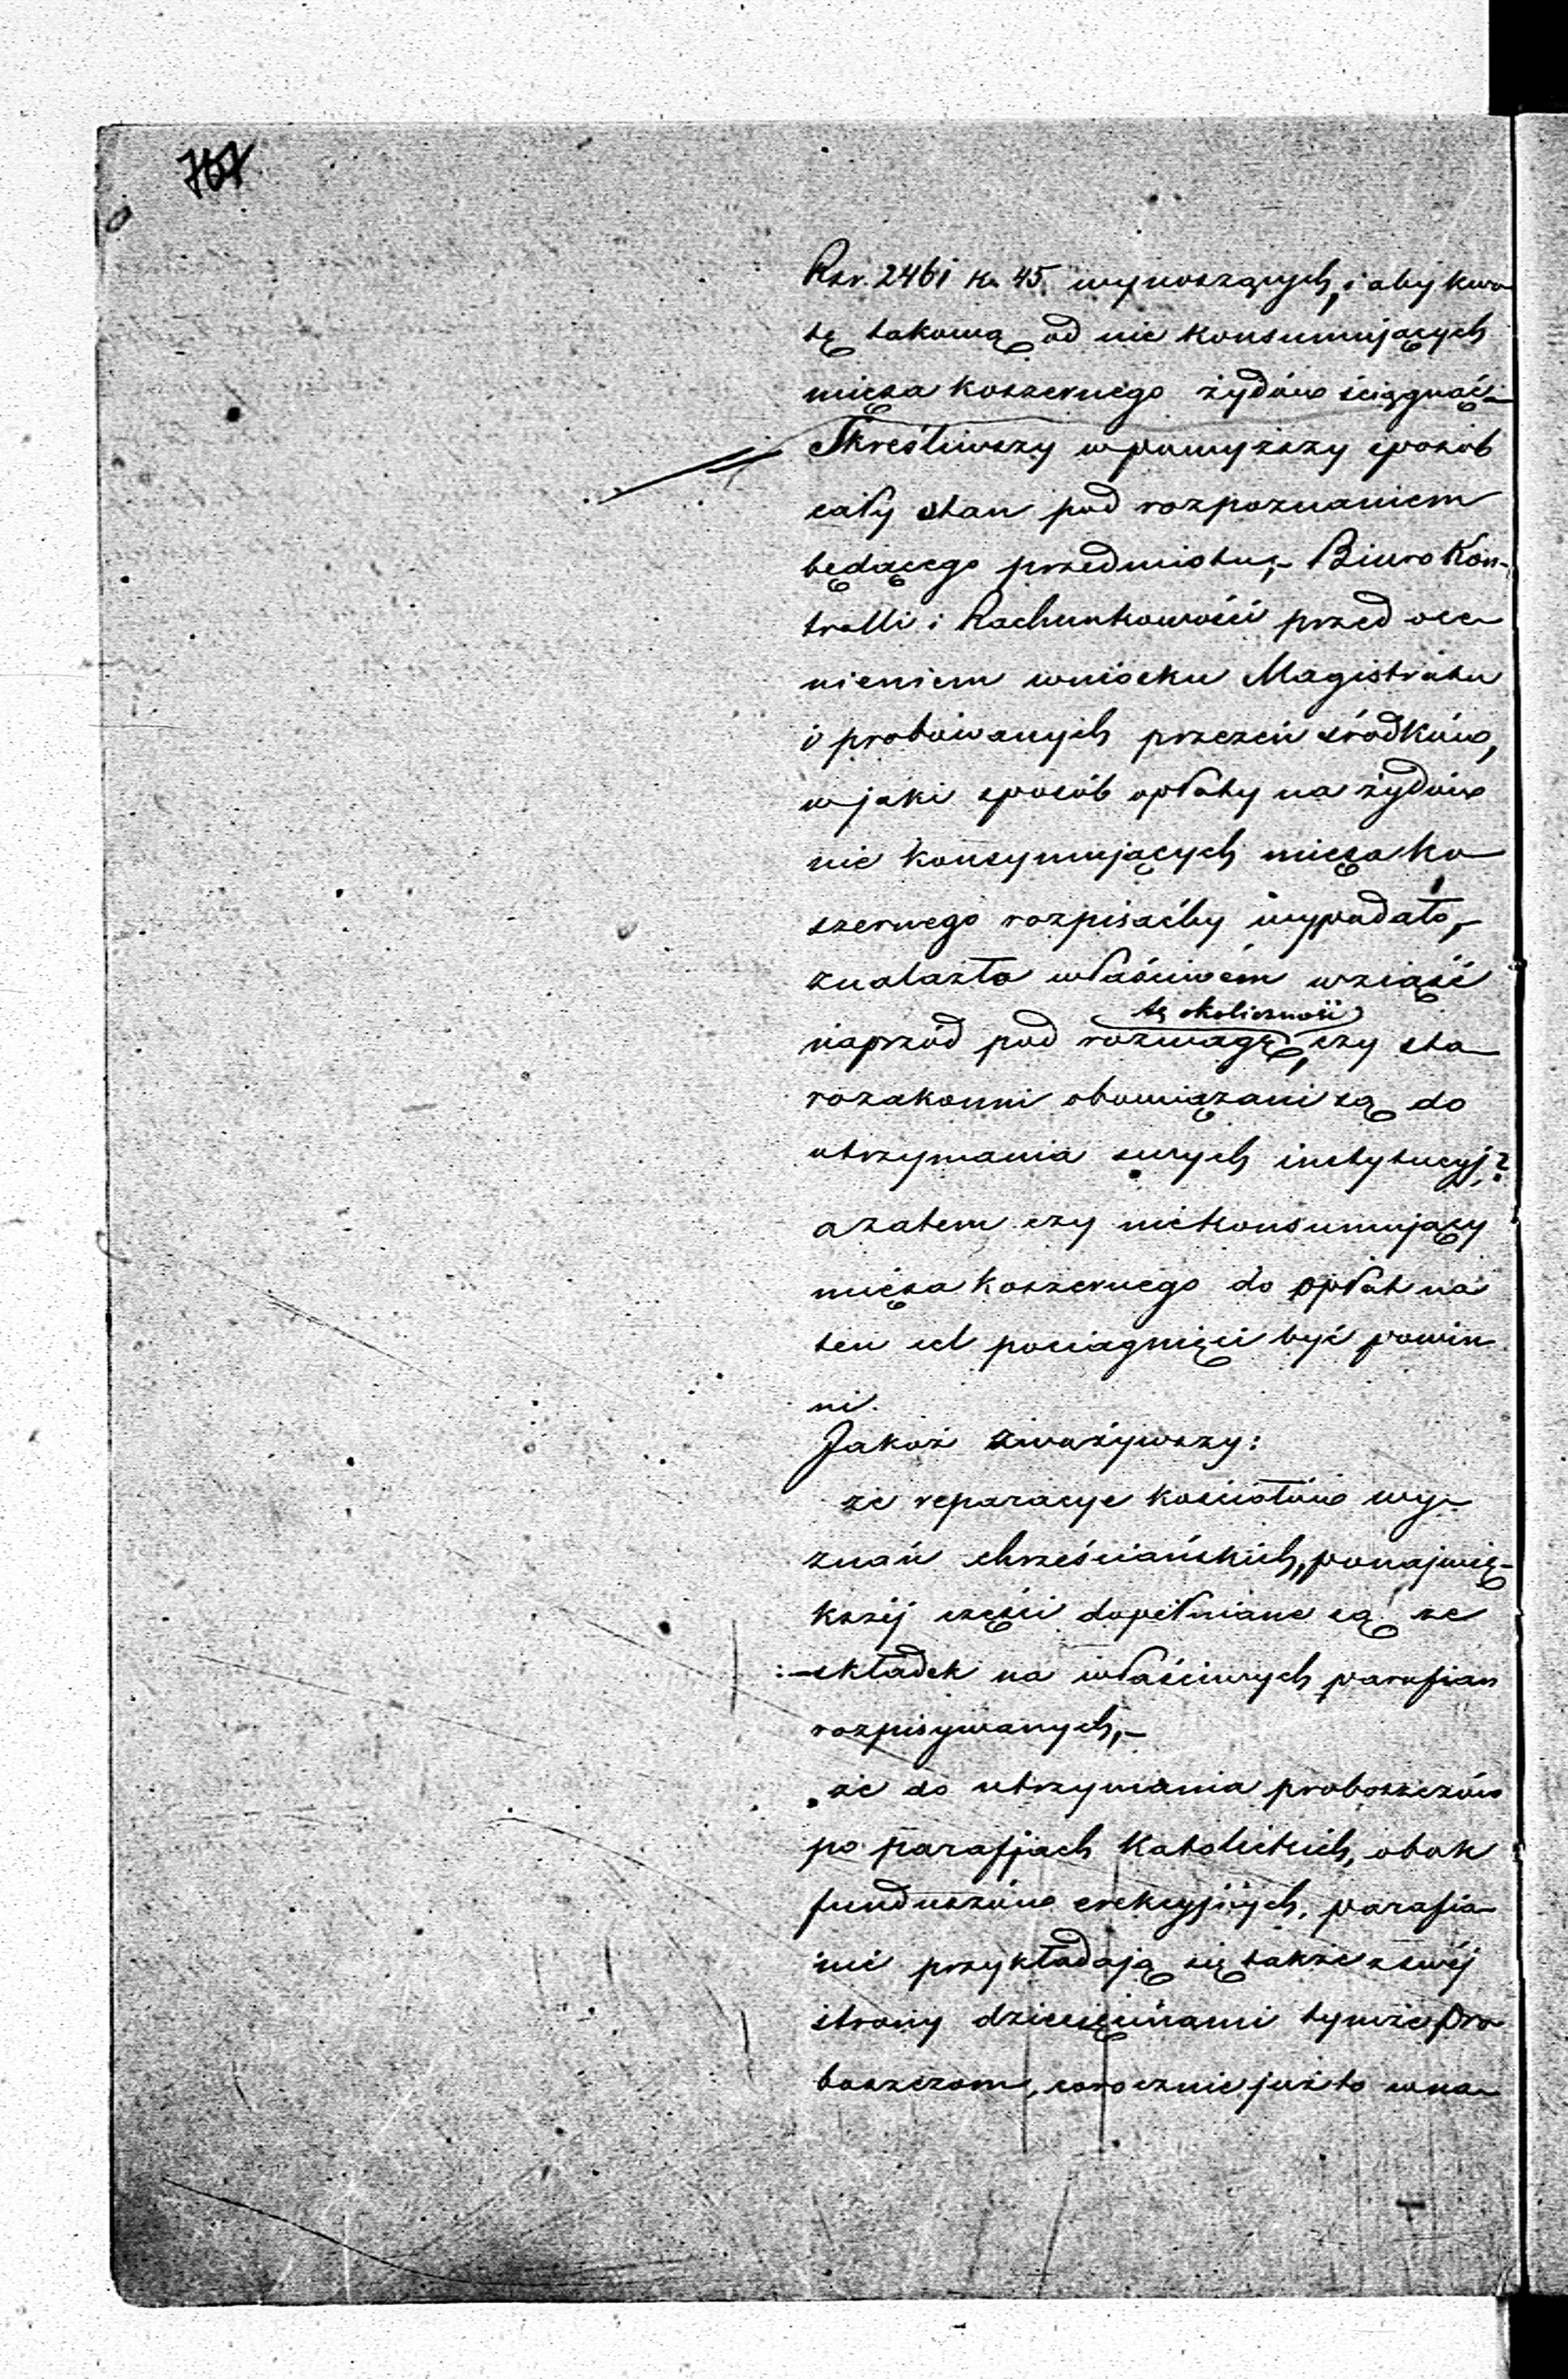 767
Rsr. 2461 k. 45 wynoszących, i aby kwo
tę takową od nie konsumujących
mięsa koszernego żydów ściągnąć.-
Skreśliwszy w powyższy sposób
cały stan pod rozpoznaniem
będącego przedmiotu,- Biuro Kon-
trolli i Rachunkowości przed oce-
nieniem wniosku Magistratu
i probowanych przezeń środków,
w jaki sposób opłaty na żydów
nie konsymujących mięsa ko-
szernego rozpisaćby wypadało,-
znalazło właściwém wziąść
tę okoliczność
naprzód pod rozwagę, czy sta-
rozakonni obowiązani są do
utrzymania swych instytucyj?
a zatem czy niekonsumujący
mięsa koszernego do opłat na
ten cel pociągnięci być powin
ni.
Jakoż zważywszy:
że reparacye kościołów wy-
znań chrześciańskich, ponajwię-
kszéj części dopełniane są ze
składek na właściwych parafian
rozpisywanych,-
że do utrzymania proboszczów
po parafjach Katolickich, obok
funduszów erekcyjnych, parafia-
nie przykładają się także z swéj
strony dziesięcinami tymże pro-
boszczom, corocznie już to w na-